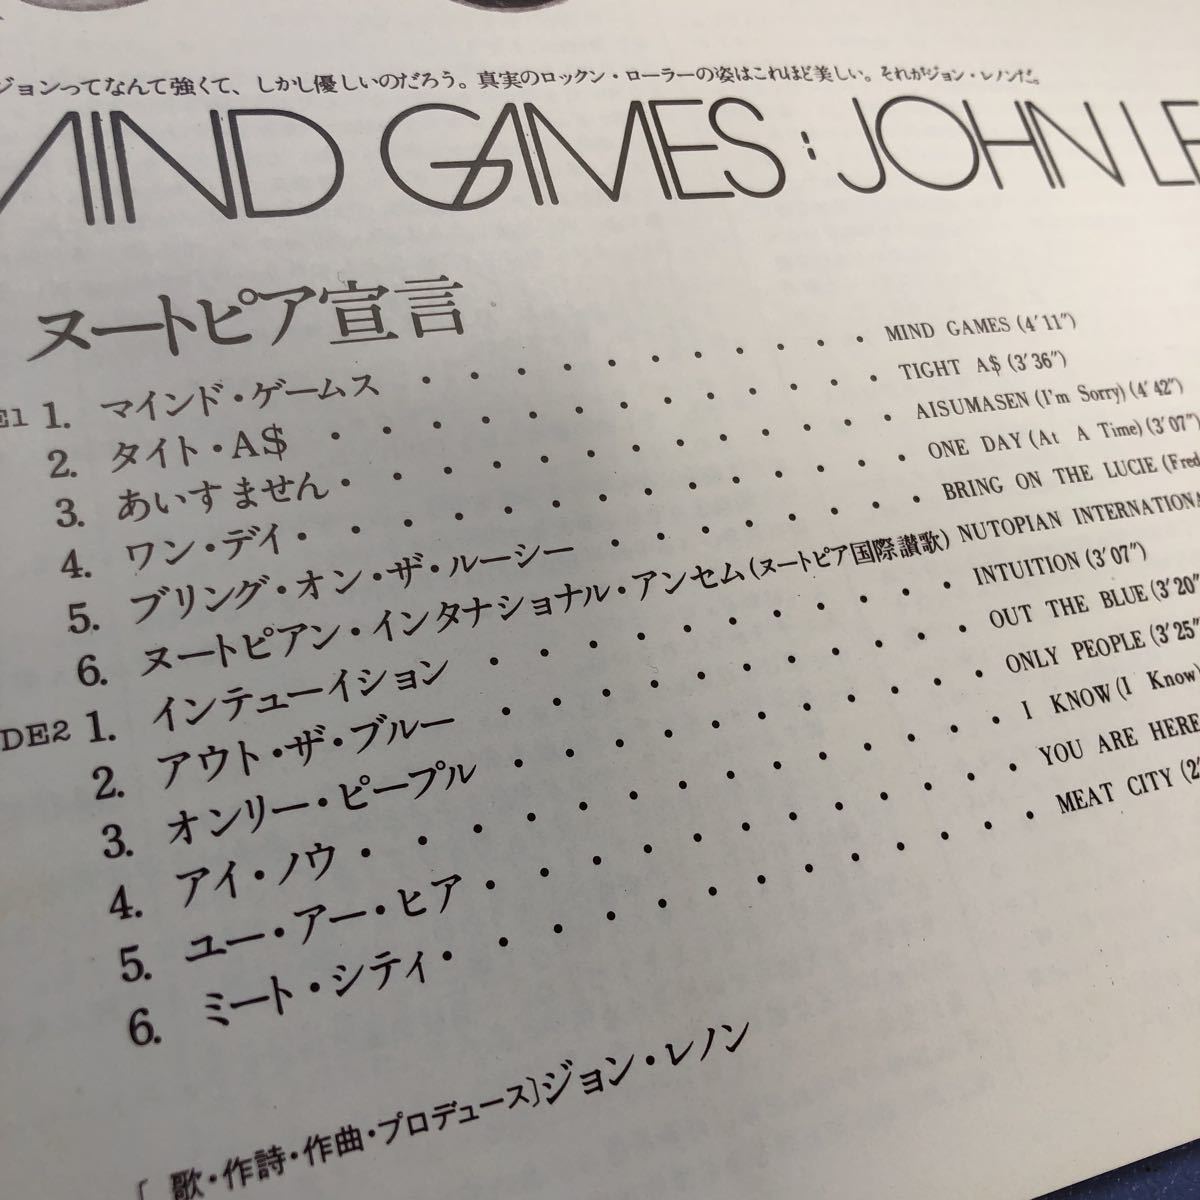 ジョンってなんて強くて、しかし優しいのだろう。真実のロックン・ローラーの姿はこれほど美しい。それがジョン・レノンだ。
MIND GAMES : JOHN LE
ヌートピア宣言
E1 1. マインド・ゲームス ・・・・・・・・・・・・ MIND GAMES (4′11″)
2. タイト・A$ ・・・・・・・・・・・・・・ TIGHT A$ (3′36″)
3. あいすません・・・・・・・・・・・・・・ AISUMASEN (I'm Sorry) (4′42″)
4. ワン・デイ・・・・・・・・・・・・・・・ ONE DAY (At A Time) (3′07″)
5. ブリング・オン・ザ・ルーシー ・・・・・・・・ BRING ON THE LUCIE (Fred
6. ヌートピアン・インタナショナル・アンセム (ヌートピア国際讃歌) NUTOPIAN INTERNATIONA
DE2 1. インテューイション ・・・・・・・・・・・・ INTUITION (3′07″)
2. アウト・ザ・ブルー ・・・・・・・・・・・・ OUT THE BLUE (3′20″
3. オンリー・ピープル ・・・・・・・・・・・・ ONLY PEOPLE (3′25″
4. アイ・ノウ ・・・・・・・・・・・・・・・ I KNOW (I Know)
5. ユー・アー・ヒア ・・・・・・・・・・・・・ YOU ARE HERE
6. ミート・シティ・・・・・・・・・・・・・・ MEAT CITY (2′
[ 歌・作詩・作曲・プロデュース]ジョン・レノン